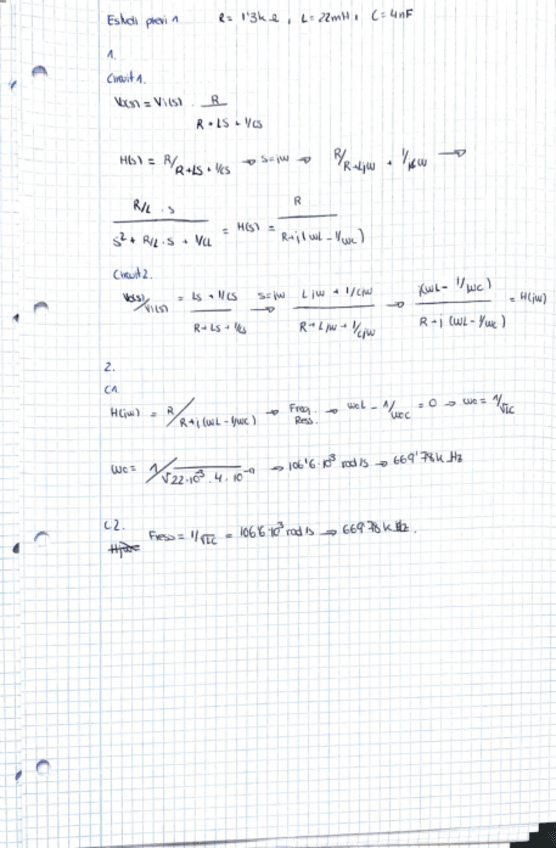 Estudi previ 1 R = 1'3kΩ, L = 22mH, C = 4nF
1.
Circuit 1.
Vo(s) = Vi(s) · R / (R + LS + 1/CS)
H(s) = R / (R + LS + 1/CS) → s=jω → R / (R + Ljω + 1/jCω) →
(R/L · s) / (s² + R/L · s + 1/CL) = H(s) = R / (R + j(ωL - 1/ωC))
Circuit 2.
Vo(s)/Vi(s) = (LS + 1/CS) / (R + LS + 1/CS) s=jω → (Ljω + 1/Cjω) / (R + Ljω + 1/Cjω) → j(ωL - 1/ωC) / (R + j(ωL - 1/ωC)) = H(jω)
2.
C1.
H(jω) = R / (R + j(ωL - 1/ωC)) → Freq. Ress. → ωoL - 1/ωoC = 0 → ωo = 1/√LC
ωo = 1/√(22·10³ · 4·10⁻⁹) → 106'6·10³ rad/s → 669'78k Hz
C2.
Fress = 1/√LC = 106'6·10³ rad/s → 669'78k Hz.